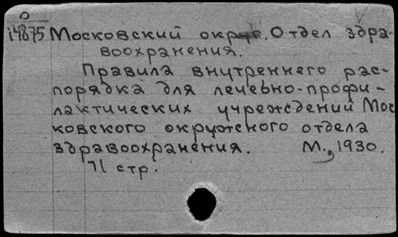 0
14875 Московский округ. Отдел здра-
воохранения.
Правила внутреннего рас-
порядка для лечебно-профи-
лактических учреждений Мос
ковского окружного отдела
здравоохранения. М., 1930.
71 стр.